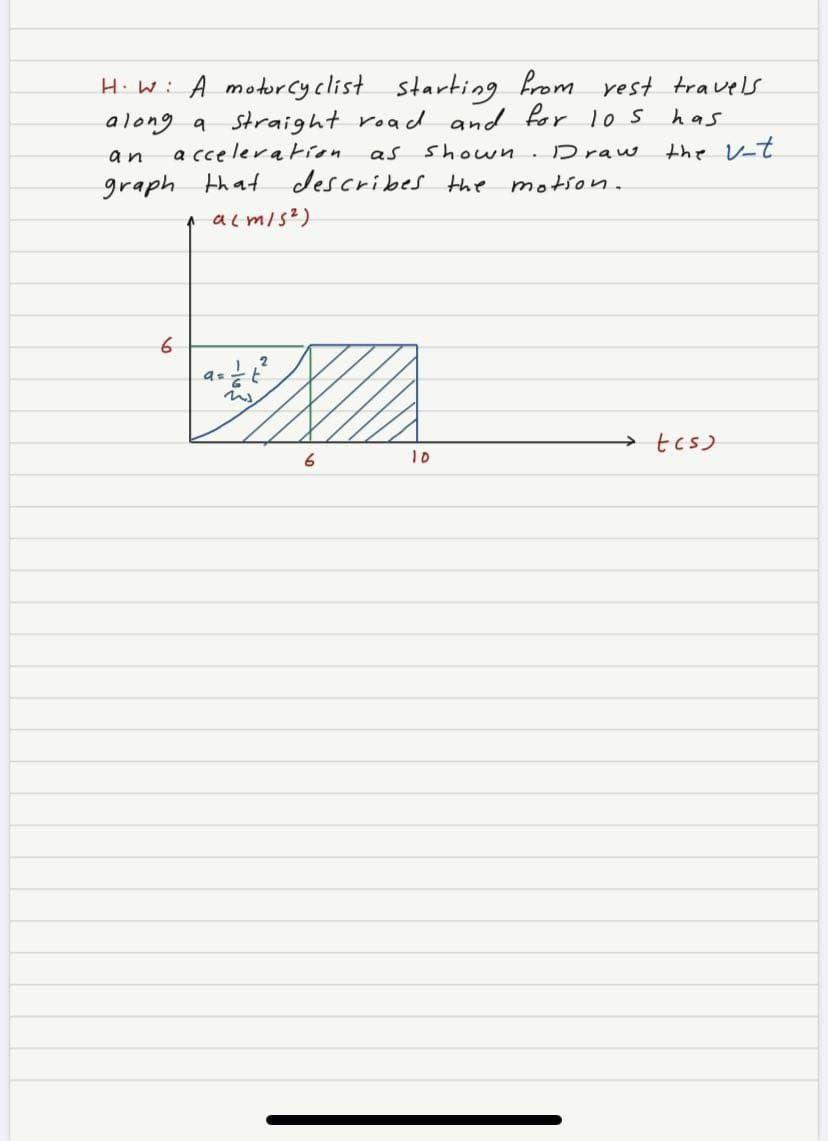 H.W: A motorcyclist starting from rest travels
along a straight road and for 10 s has
an acceleration as shown. Draw the v-t
graph that describes the motion.
a(m/s²)
6
a = 1/6 t²
6
10
t(s)